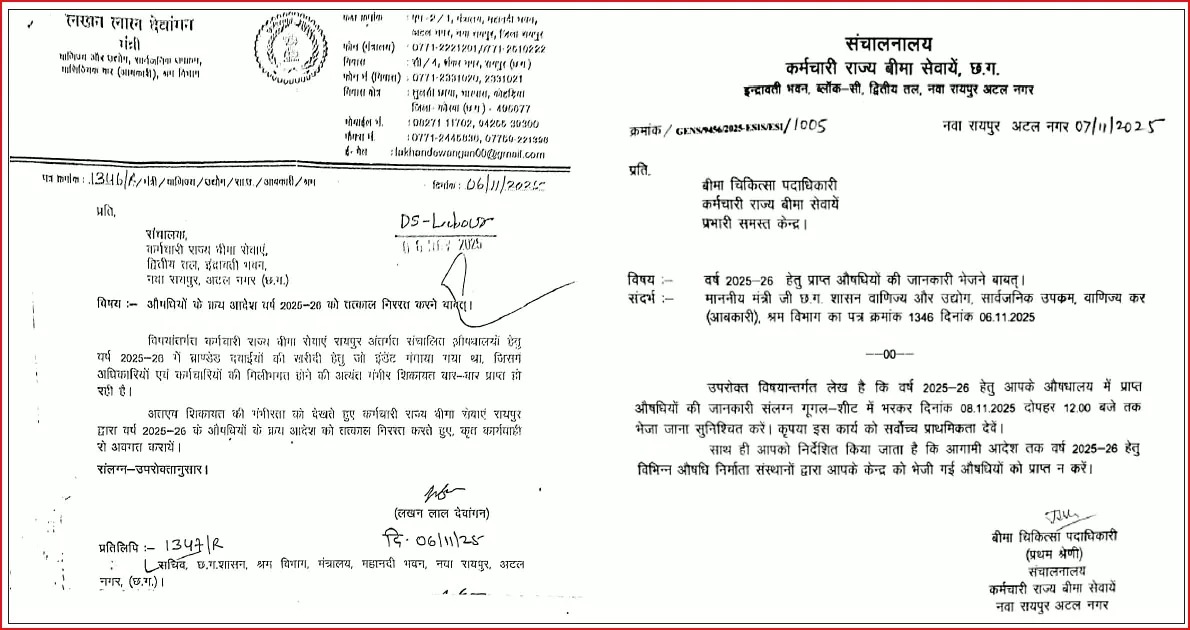 लखन लाल देवांगन
मंत्री
वाणिज्य और उद्योग, सार्वजनिक उपक्रम,
वाणिज्यिक कर (आबकारी), श्रम विभाग
कक्ष क्रमांक : एम-2/1, मंत्रालय, महानदी भवन,
अटल नगर, नवा रायपुर, जिला रायपुर
फोन (मंत्रालय) : 0771-2221201/771-2510222
निवास : सी/4, शंकर नगर, रायपुर (छ.ग.)
फोन नं (निवास) : 0771-2331020, 2331021
निवास क्षेत्र :
जिला- कोरबा (छ.ग.) - 495677
मोबाईल नं. : 08271 11702, 94255 39300
फैक्स नं. : 0771-2445836, 07759-221398
ई- मेल : lakhandewangan00@gmail.com
पत्र क्रमांक : 1346/R/मंत्री/वाणिज्य/उद्योग/सा.उ./आबकारी/श्रम
दिनांक : 06/11/2025
प्रति,
DS-Labour
2025
संचालक,
कर्मचारी राज्य बीमा सेवाएं,
द्वितीय तल, इंद्रावती भवन,
नवा रायपुर, अटल नगर (छ.ग.)
विषय :- औषधियों के क्रय आदेश वर्ष 2025-26 को तत्काल निरस्त करने बाबत्।
विषयांतर्गत कर्मचारी राज्य बीमा सेवाएं रायपुर अंतर्गत संचालित औषधालयों हेतु
वर्ष 2025-26 में ब्राण्डेड दवाईयों की खरीदी हेतु जो इंडेंट मंगाया गया था, जिसमें
अधिकारियों एवं कर्मचारियों की मिलीभगत होने की अत्यंत गंभीर शिकायत बार-बार प्राप्त हो
रही है।
अतएव शिकायत की गंभीरता को देखते हुए कर्मचारी राज्य बीमा सेवाएं रायपुर
द्वारा वर्ष 2025-26 के औषधियों के क्रय आदेश को तत्काल निरस्त करते हुए, कृत कार्यवाही
से अवगत करायें।
संलग्न-उपरोक्तानुसार।
(लखन लाल देवांगन)
दि. 06/11/25
प्रतिलिपि :- 1347/R
सचिव, छ.ग.शासन, श्रम विभाग, मंत्रालय, महानदी भवन, नवा रायपुर, अटल
नगर, (छ.ग.)।
संचालनालय
कर्मचारी राज्य बीमा सेवायें, छ.ग.
इन्द्रावती भवन, ब्लॉक-सी, द्वितीय तल, नवा रायपुर अटल नगर
क्रमांक / GENS/9456/2025-ESIS/ESI/1005
नवा रायपुर अटल नगर 07/11/2025
प्रति.
बीमा चिकित्सा पदाधिकारी
कर्मचारी राज्य बीमा सेवायें
प्रभारी समस्त केन्द्र।
विषय :- वर्ष 2025-26 हेतु प्राप्त औषधियों की जानकारी भेजने बाबत्।
संदर्भ :- माननीय मंत्री जी छ.ग. शासन वाणिज्य और उद्योग, सार्वजनिक उपक्रम, वाणिज्य कर
(आबकारी), श्रम विभाग का पत्र क्रमांक 1346 दिनांक 06.11.2025
--00--
उपरोक्त विषयान्तर्गत लेख है कि वर्ष 2025-26 हेतु आपके औषधालय में प्राप्त
औषधियों की जानकारी संलग्न गूगल-शीट में भरकर दिनांक 08.11.2025 दोपहर 12.00 बजे तक
भेजा जाना सुनिश्चित करें। कृपया इस कार्य को सर्वोच्च प्राथमिकता देवें।
साथ ही आपको निर्देशित किया जाता है कि आगामी आदेश तक वर्ष 2025-26 हेतु
विभिन्न औषधि निर्माता संस्थानों द्वारा आपके केन्द्र को भेजी गई औषधियों को प्राप्त न करें।
बीमा चिकित्सा पदाधिकारी
(प्रथम श्रेणी)
संचालनालय
कर्मचारी राज्य बीमा सेवायें
नवा रायपुर अटल नगर